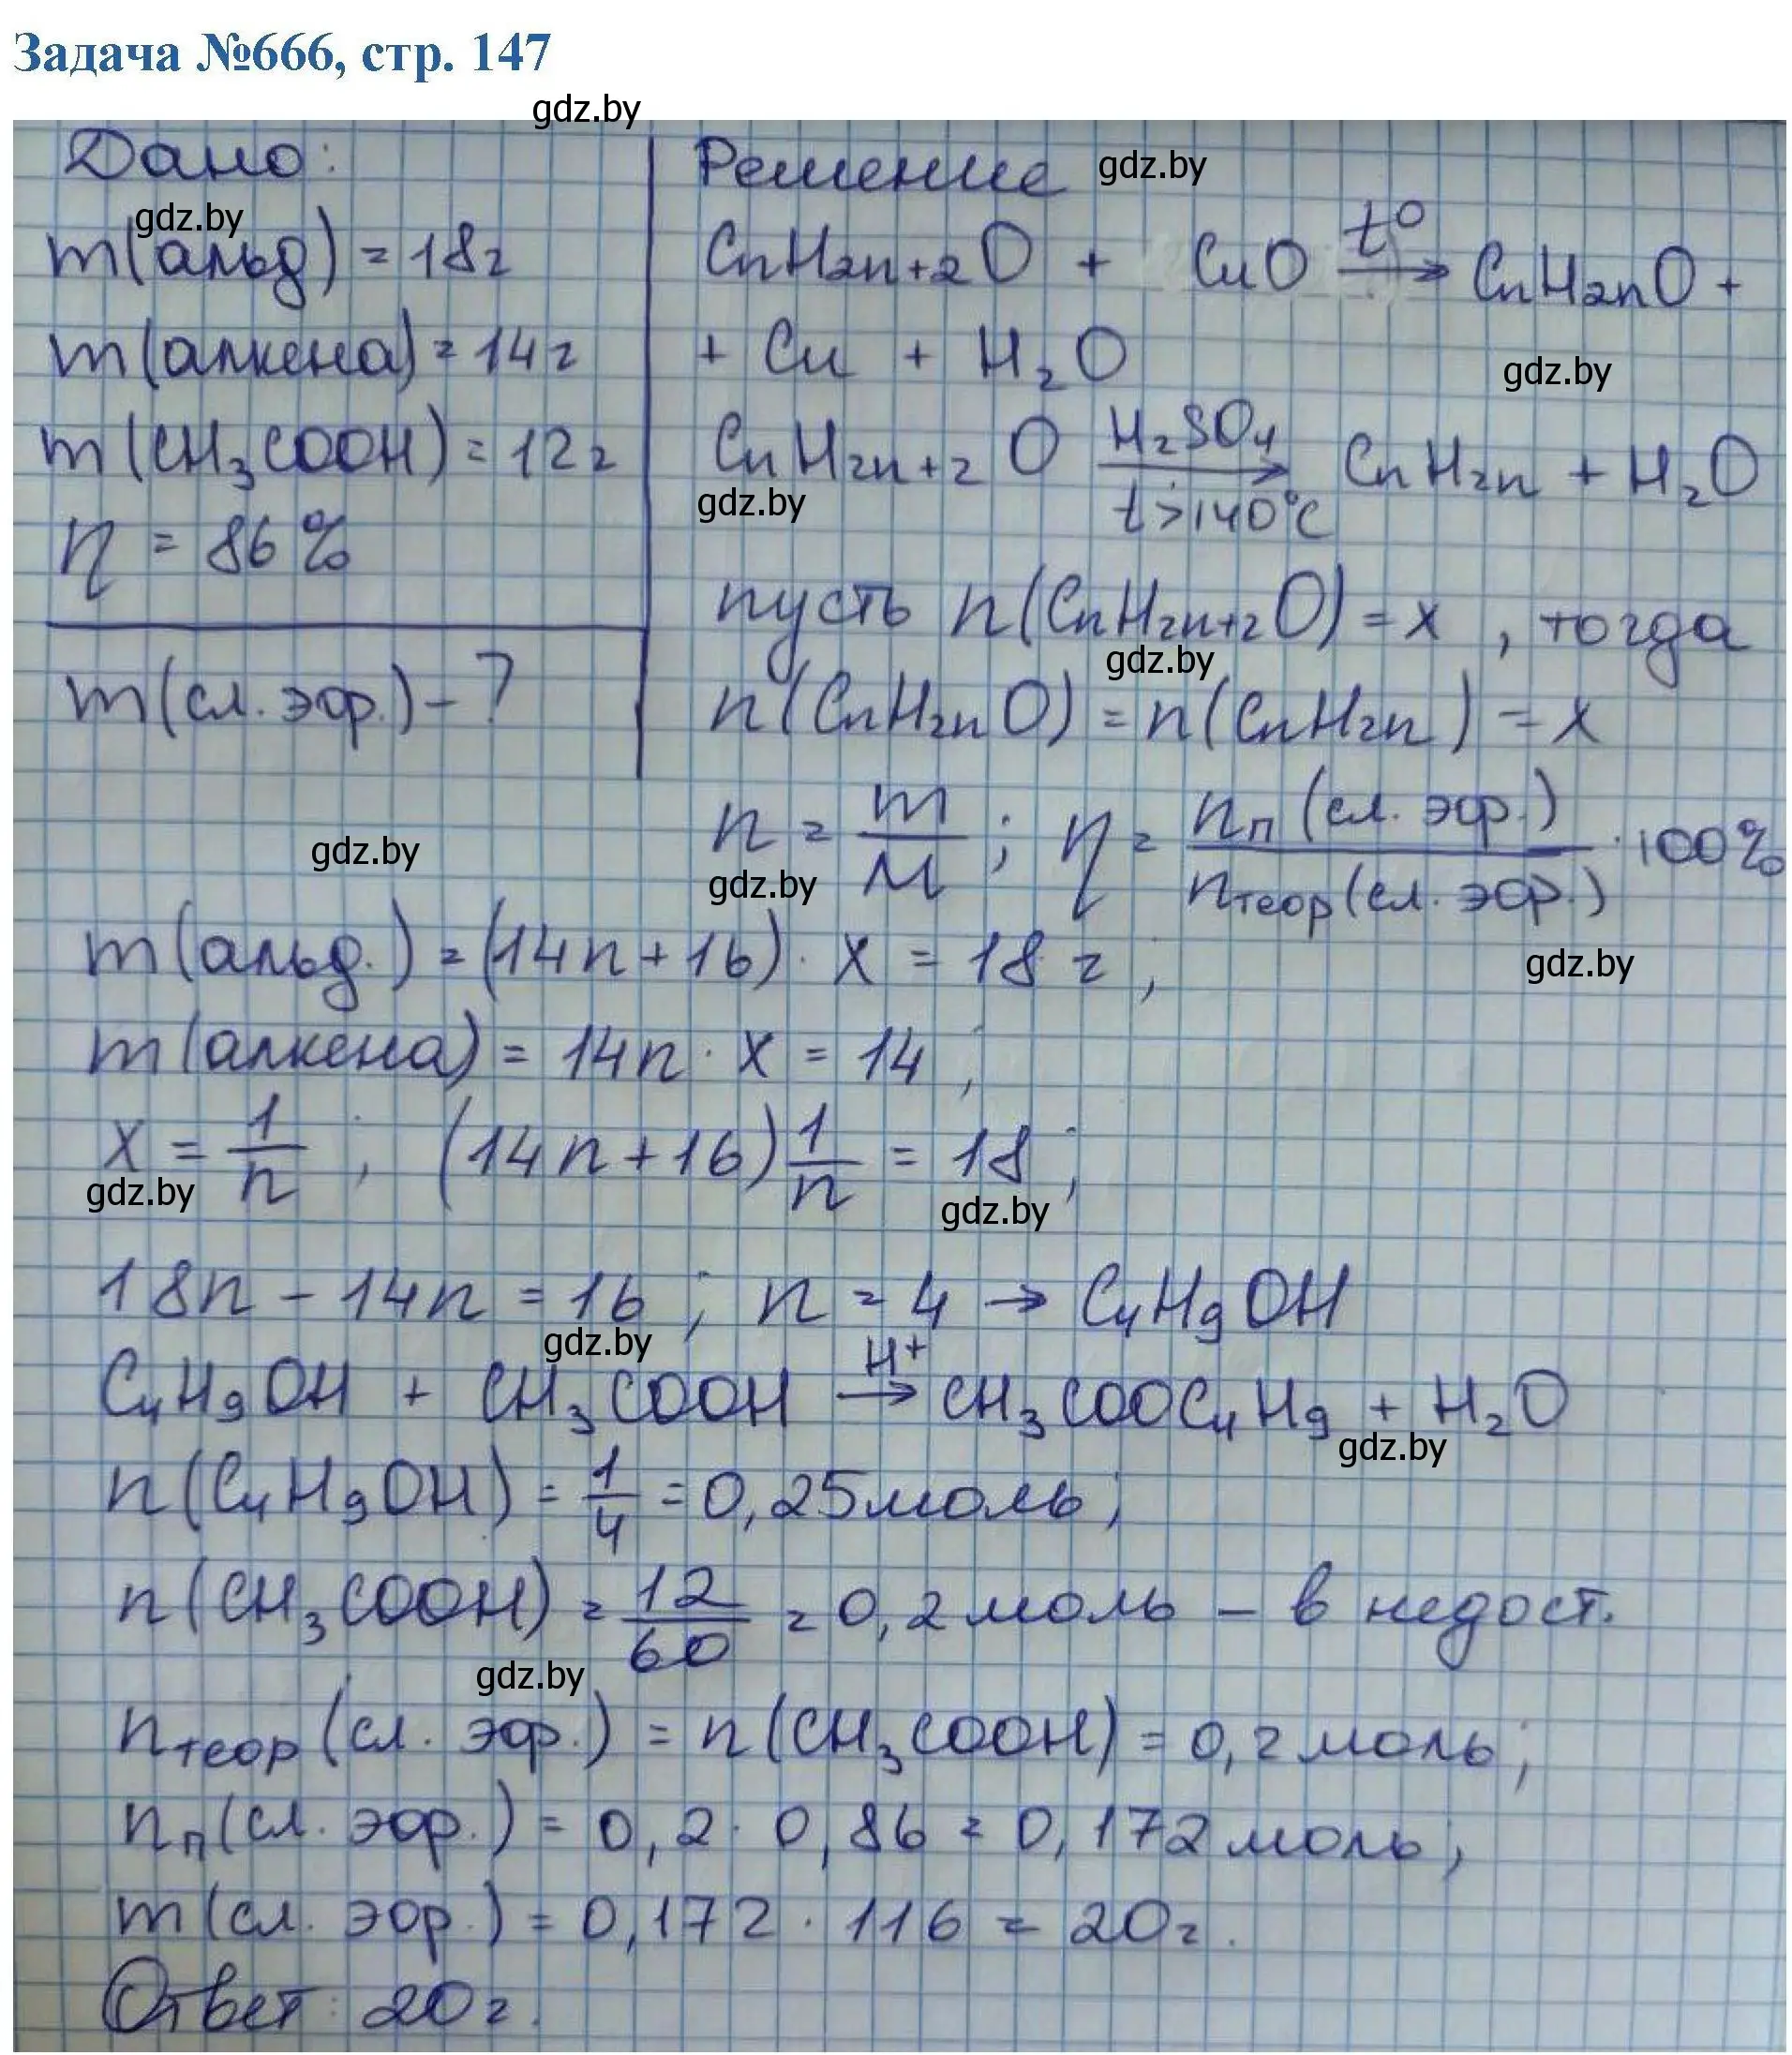 Задача №666, стр. 147
gdz.by
Дано:
gdz.by
m(альд) = 18г
m(алкена) = 14г
m(CH₃COOH) = 12г
η = 86%
m(сл. эфр.) - ?
Решение gdz.by
CnH2n+2O + CuO t° → CnH2nO +
+ Cu + H₂O
gdz.by
CnH2n+2O H₂SO₄ → t>140°C CnH2n + H₂O
gdz.by
пусть n(CnH2n+2O) = x , тогда
gdz.by
n(CnH2nO) = n(CnH2n) = x
n = m/M ; η = nп(сл. эфр.)/nтеор(сл. эфр.) · 100%
gdz.by
gdz.by
m(альд.) = (14n + 16) · x = 18 г ;
gdz.by
m(алкена) = 14n · x = 14 ;
x = 1/n ; (14n + 16) 1/n = 18 ;
gdz.by
gdz.by
18n - 14n = 16 ; n = 4 → C₄H₉OH
gdz.by
C₄H₉OH + CH₃COOH H⁺ → CH₃COOC₄H₉ + H₂O
gdz.by
n(C₄H₉OH) = 1/4 = 0,25моль ;
n(CH₃COOH) = 12/60 = 0,2моль - в недост.
gdz.by
nтеор(сл. эфр.) = n(CH₃COOH) = 0,2моль ;
nп(сл. эфр.) = 0,2 · 0,86 = 0,172моль ;
m(сл. эфр.) = 0,172 · 116 = 20г.
Ответ: 20г.